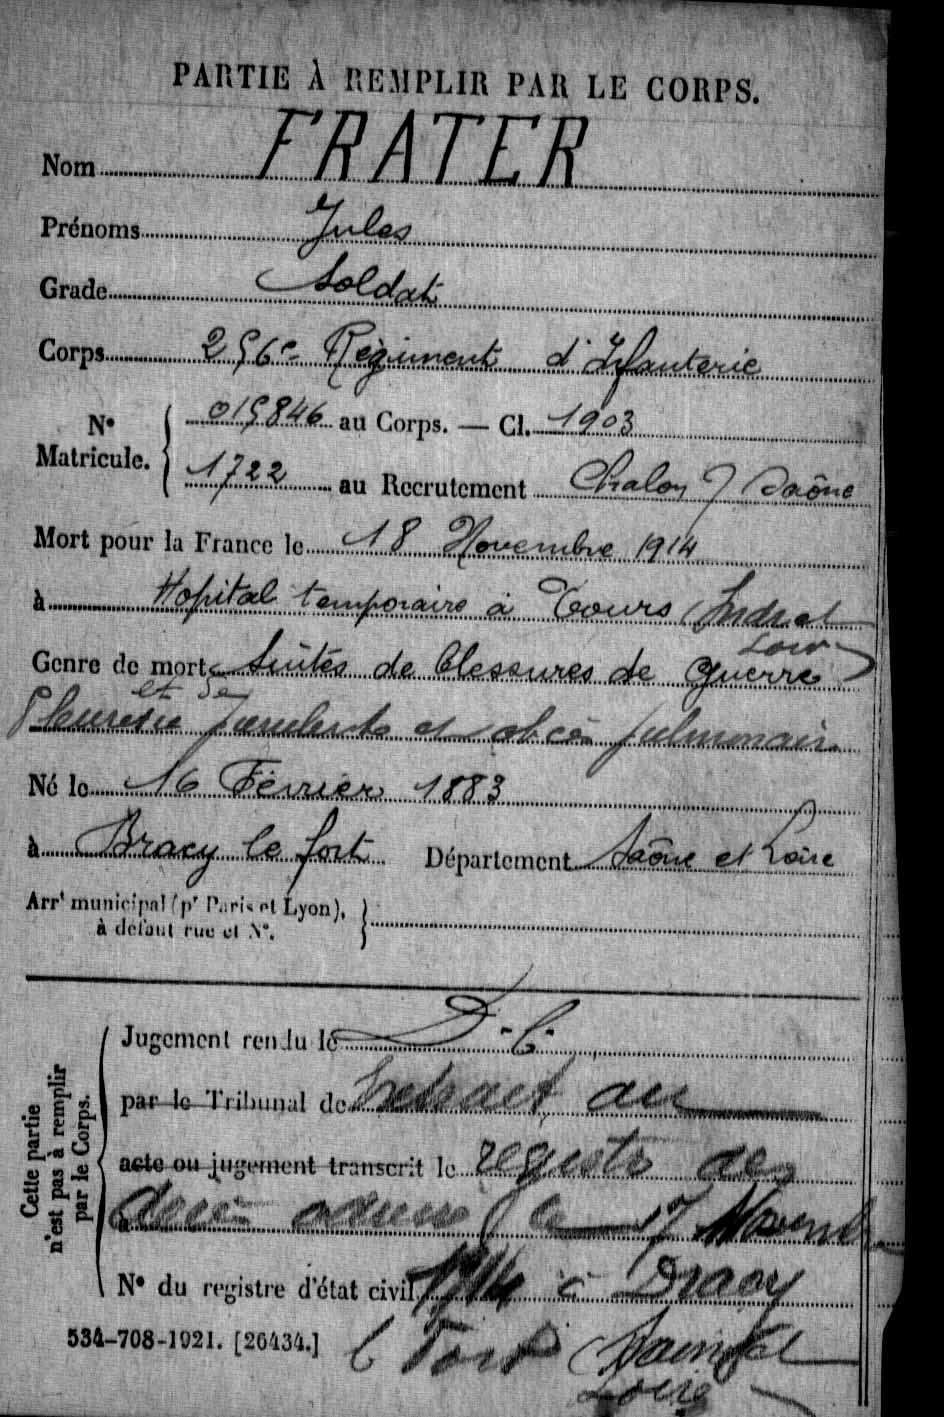 PARTIE À REMPLIR PAR LE CORPS.
Nom FRATER
Prénoms Jules
Grade Soldat
Corps 256e Régiment d'Infanterie
N° Matricule. 015846 au Corps. — Cl. 1903
1722 au Recrutement Chalon s/ Saône
Mort pour la France le 18 Novembre 1914
à Hopital temporaire à Tours (Indre et Loire)
Genre de mort Suites de blessures de guerre
et de
Pleurésie purulente et abcès pulmonaire
Né le 16 Février 1883
à Bracy le fort Département Saône et Loire
Arrt municipal (pr Paris et Lyon), à défaut rue et N°.
Cette partie n'est pas à remplir par le Corps.
Jugement rendu le D.C.
par le Tribunal de Extrait du
acte ou jugement transcrit le registre des
à décès adressé le 17 Novembre
N° du registre d'état civil 1914 à Dracy
534-708-1921. [26434.] le Fort (Saône et
Loire)